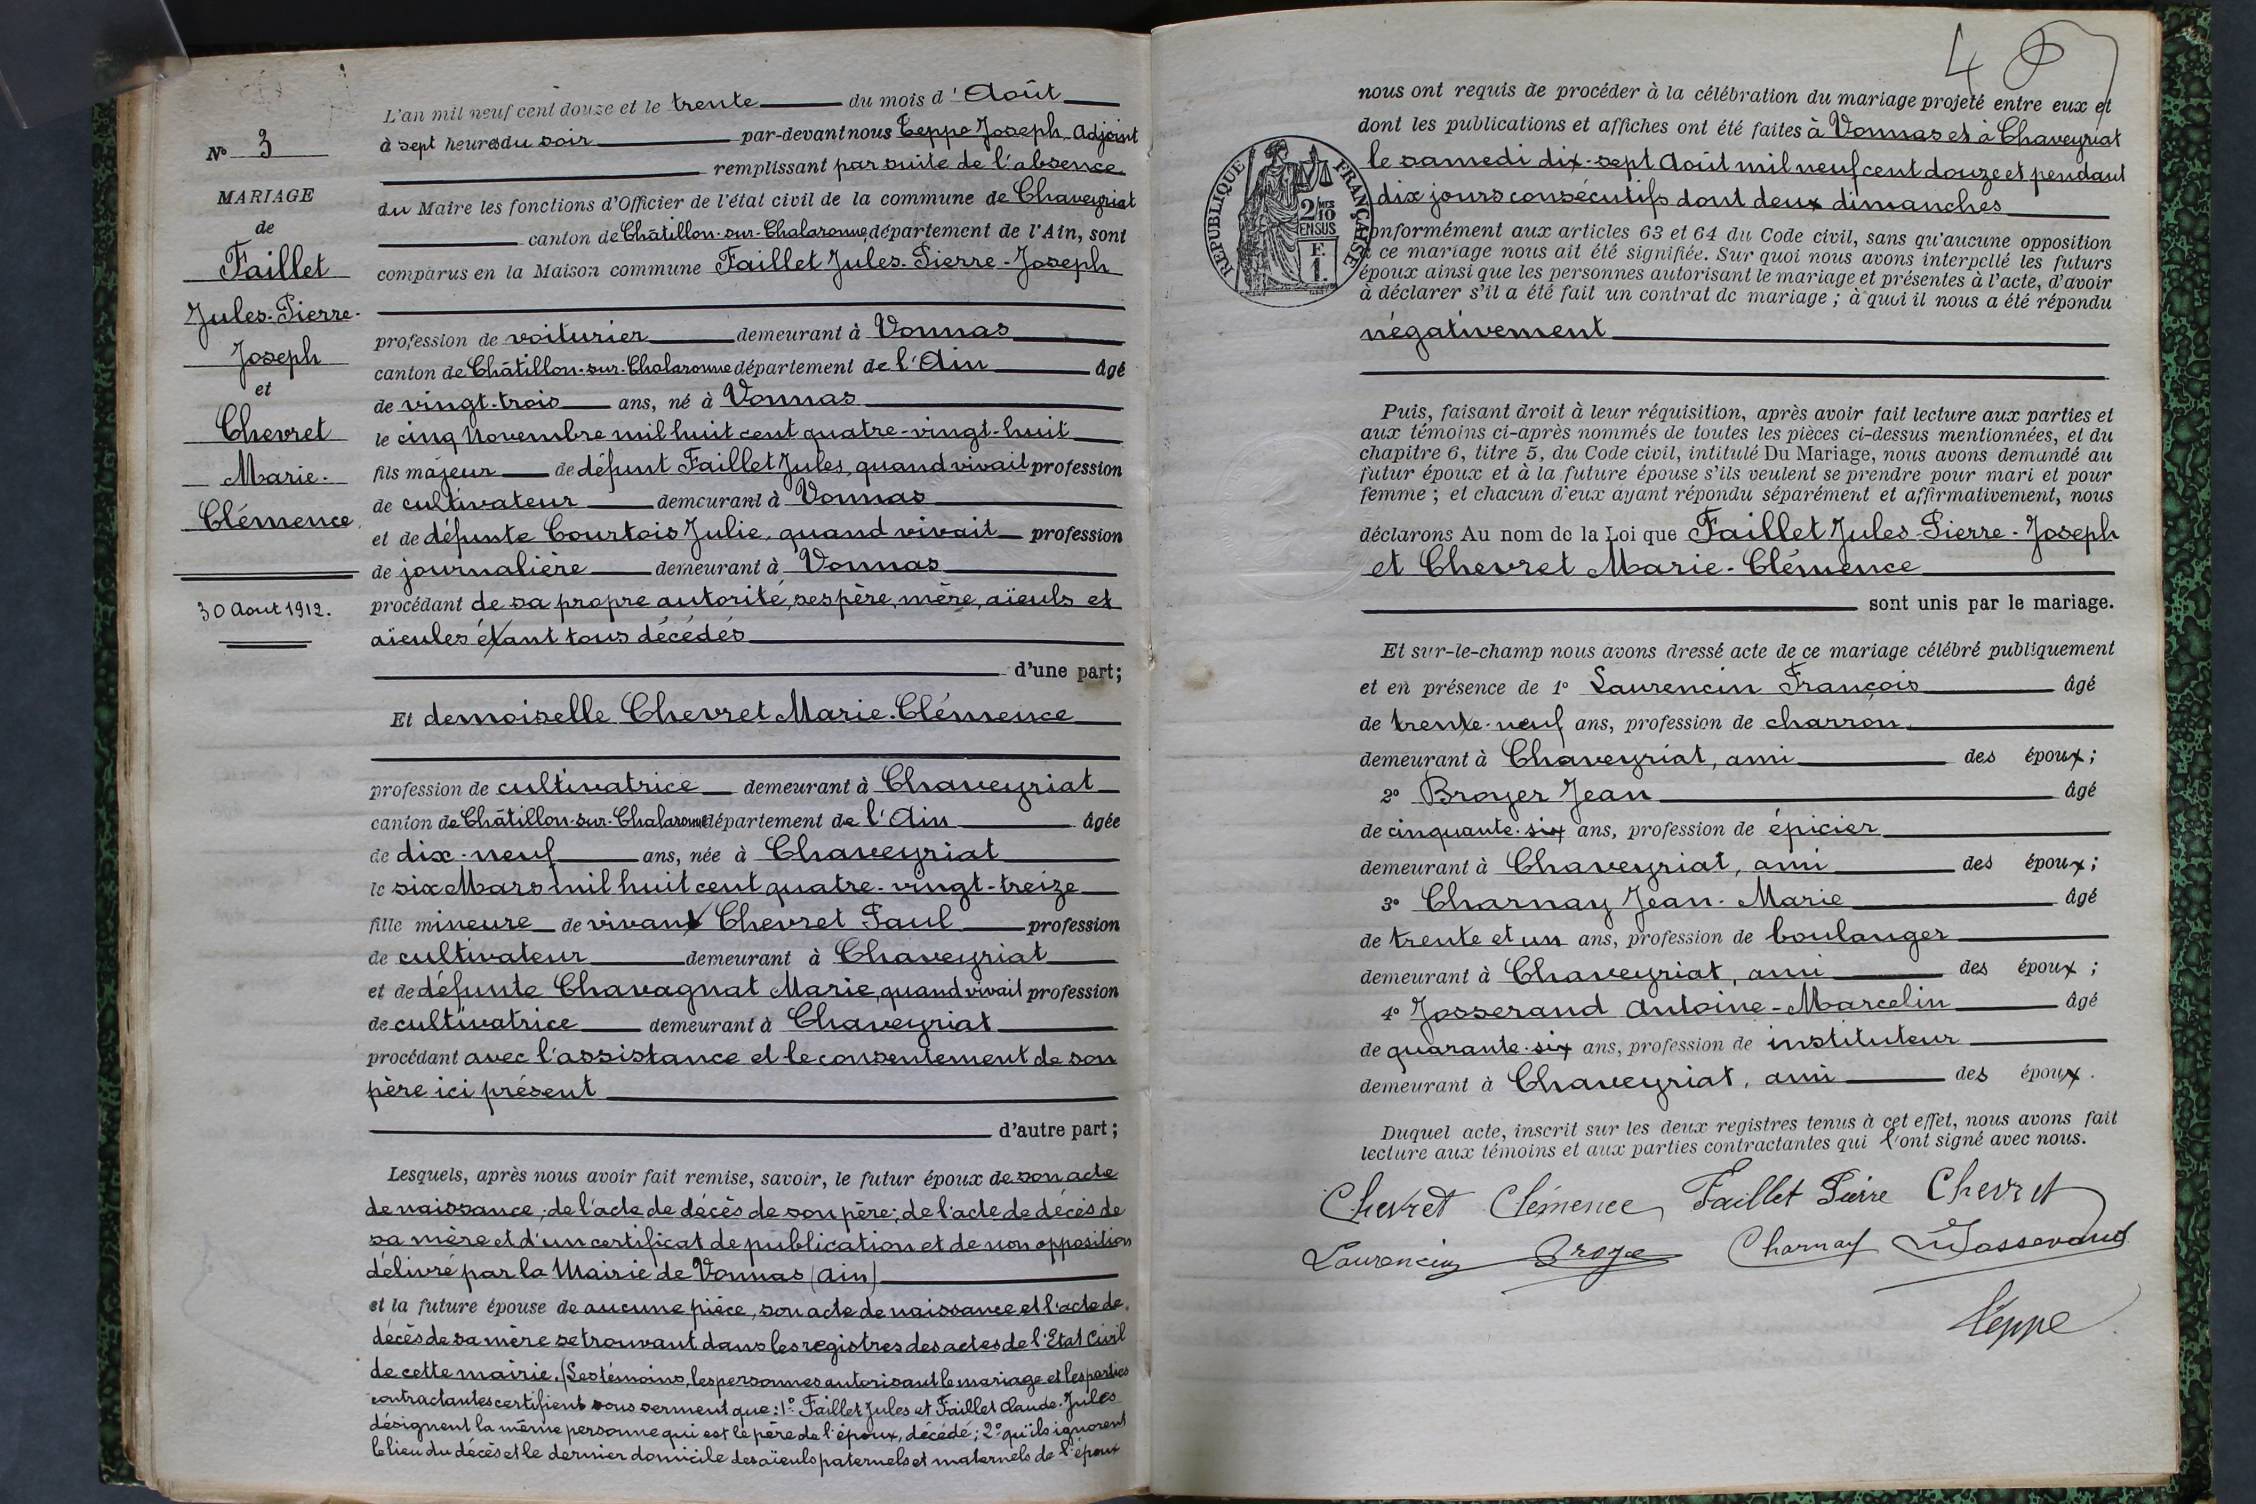 N° 3
MARIAGE
de
Faillet
Jules-Pierre-
Joseph
et
Chevret
Marie-
Clémence
30 Aout 1912.
L'an mil neuf cent douze et le trente du mois d'Août
à sept heures du soir par-devant nous Teppe Joseph, Adjoint
remplissant par suite de l'absence
du Maire les fonctions d'Officier de l'état civil de la commune de Chaveyriat
canton de Châtillon-sur-Chalaronne, département de l'Ain, sont
comparus en la Maison commune Faillet Jules-Pierre-Joseph
profession de voiturier demeurant à Vonnas
canton de Châtillon-sur-Chalaronne département de l'Ain âgé
de vingt-trois ans, né à Vonnas
le cinq Novembre mil huit cent quatre-vingt-huit
fils majeur de défunt Faillet Jules, quand vivait profession
de cultivateur demeurant à Vonnas
et de défunte Courtois Julie, quand vivait profession
de journalière demeurant à Vonnas
procédant de sa propre autorité, ses père, mère, aïeuls et
aïeules étant tous décédés
d'une part;
Et demoiselle Chevret Marie-Clémence
profession de cultivatrice demeurant à Chaveyriat
canton de Châtillon-sur-Chalaronne département de l'Ain âgée
de dix-neuf ans, née à Chaveyriat
le six Mars mil huit cent quatre-vingt-treize
fille mineure de vivant Chevret Paul profession
de cultivateur demeurant à Chaveyriat
et de défunte Chavagnat Marie, quand vivait profession
de cultivatrice demeurant à Chaveyriat
procédant avec l'assistance et le consentement de son
père ici présent
d'autre part;
Lesquels, après nous avoir fait remise, savoir, le futur époux de son acte
de naissance; de l'acte de décès de son père; de l'acte de décès de
sa mère et d'un certificat de publication et de non opposition
délivré par la Mairie de Vonnas (Ain)
et la future épouse de aucune pièce, son acte de naissance et l'acte de
décès de sa mère se trouvant dans les registres des actes de l'Etat Civil
de cette mairie. (Les témoins, les personnes autorisant le mariage et les parties
contractantes certifient sous serment que: 1° Faillet Jules et Faillet Claude-Jules
désignent la même personne qui est le père de l'époux, décédé; 2° qu'ils ignorent
le lieu du décès et le dernier domicile des aïeuls paternels et maternels de l'époux
4
nous ont requis de procéder à la célébration du mariage projeté entre eux et
dont les publications et affiches ont été faites à Vonnas et à Chaveyriat
le samedi dix-sept Août mil neuf cent douze et pendant
dix jours consécutifs dont deux dimanches
RÉPUBLIQUE FRANÇAISE
2/10 MES
EN SUS
F.
1.
conformément aux articles 63 et 64 du Code civil, sans qu'aucune opposition
à ce mariage nous ait été signifiée. Sur quoi nous avons interpellé les futurs
époux ainsi que les personnes autorisant le mariage et présentes à l'acte, d'avoir
à déclarer s'il a été fait un contrat de mariage; à quoi il nous a été répondu
négativement
Puis, faisant droit à leur réquisition, après avoir fait lecture aux parties et
aux témoins ci-après nommés de toutes les pièces ci-dessus mentionnées, et du
chapitre 6, titre 5, du Code civil, intitulé Du Mariage, nous avons demandé au
futur époux et à la future épouse s'ils veulent se prendre pour mari et pour
femme; et chacun d'eux ayant répondu séparément et affirmativement, nous
déclarons Au nom de la Loi que Faillet Jules-Pierre-Joseph
et Chevret Marie-Clémence
sont unis par le mariage.
Et sur-le-champ nous avons dressé acte de ce mariage célébré publiquement
et en présence de 1° Laurencin François âgé
de trente-neuf ans, profession de charron
demeurant à Chaveyriat, ami des époux;
2° Broyer Jean âgé
de cinquante-six ans, profession de épicier
demeurant à Chaveyriat, ami des époux;
3° Charnay Jean-Marie âgé
de trente et un ans, profession de boulanger
demeurant à Chaveyriat, ami des époux;
4° Josserand Antoine-Marcelin âgé
de quarante-six ans, profession de instituteur
demeurant à Chaveyriat, ami des époux.
Duquel acte, inscrit sur les deux registres tenus à cet effet, nous avons fait
lecture aux témoins et aux parties contractantes qui l'ont signé avec nous.
Chevret Clémence Faillet Pierre Chevret
Laurencin Broye Charnay Josserand
Teppe